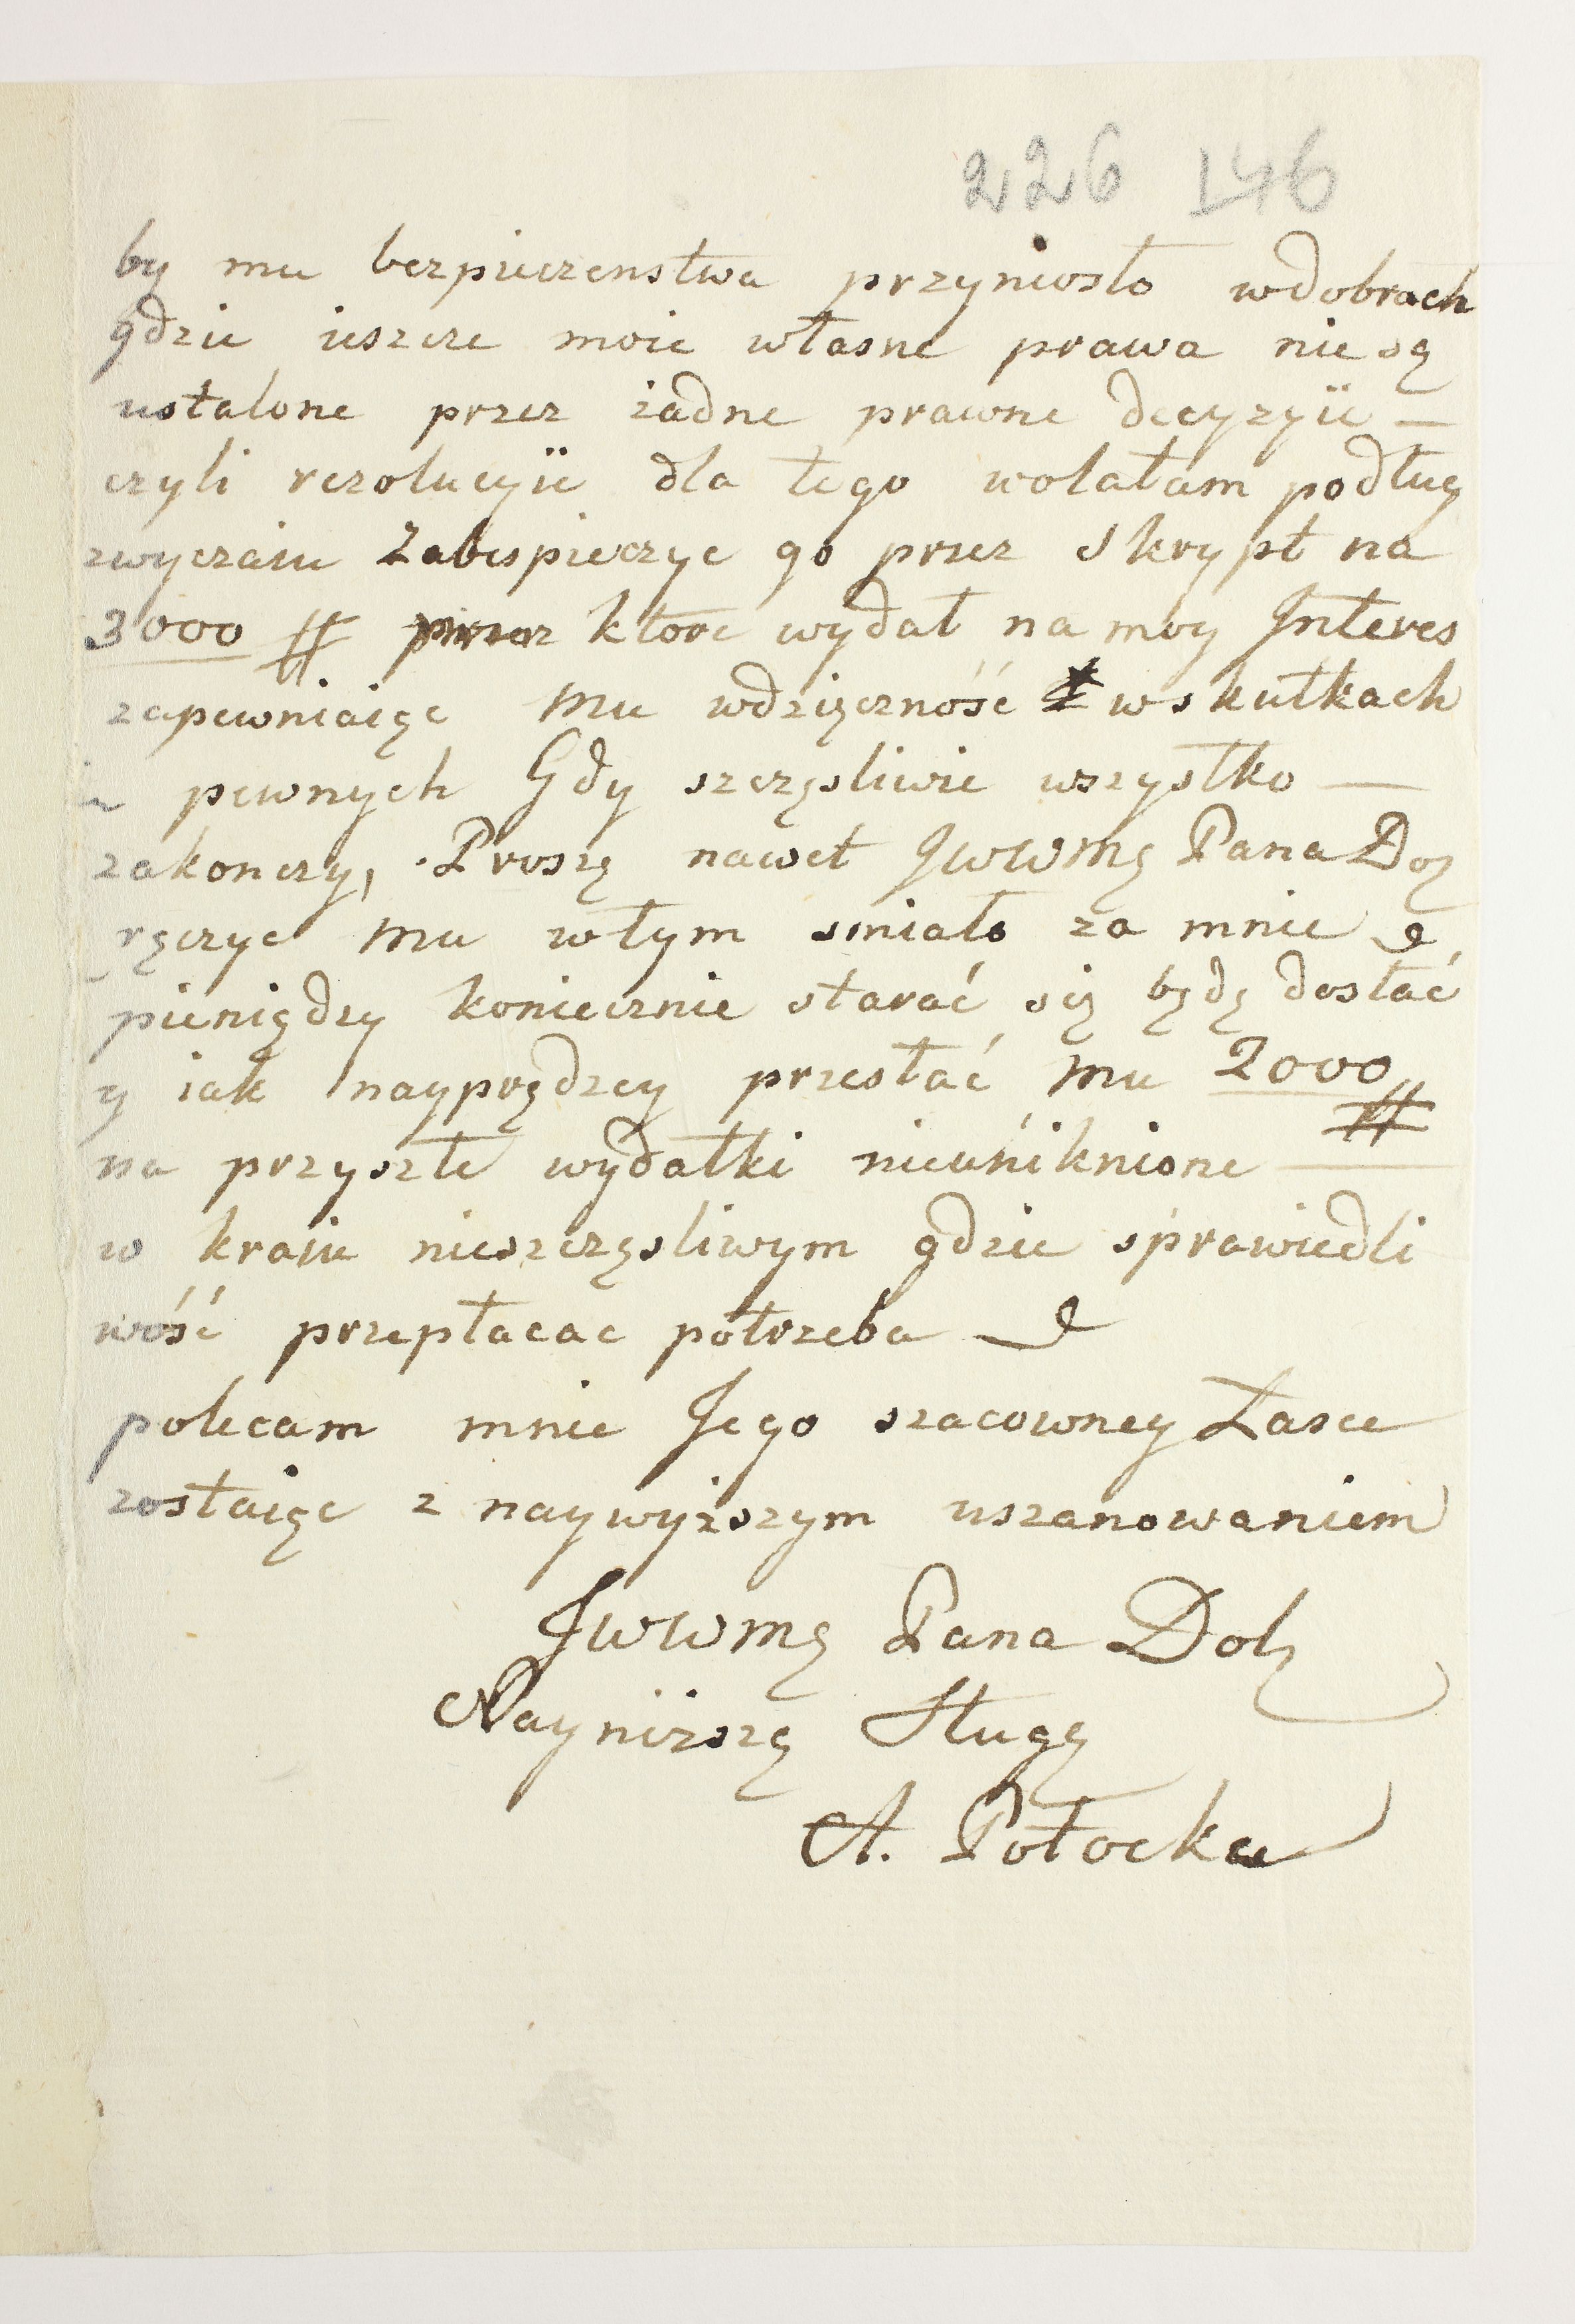 226 146
by mu bezpieczenstwa przyniosło wdobrach
gdzie ieszcze moie własne prawa nie są
ustalone przez żadne prawne decyzyie —
czyli rezolucyie dla tego wolałam podług
zwyczaiu Zabespieczyc go przez Skrypt na
3000 # ktore wydał na moy Jnteres
zapewniaiąc mu wdzięczność w skutkach
pewnych Gdy szczęsliwie wszystko —
zakonczy, Proszę nawet JWWMę Pana Do
ręczyc mu w tym smiało za mnie
pieniędzy koniecznie starać się będę dostać
y iak nayprędzey przesłać mu 2000
#
na przyszłe wydatki nieuniknione —
w kraiu nieszczęsliwym gdzie sprawiedli
wość przepłacac potrzeba
polecam mnie Jego szacowney Łasce
zostaiąc z naywyższym uszanowaniem
JWWMę Pana Dob
Nayniższą Sługą
A. Potocka